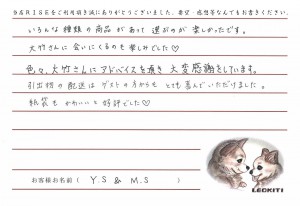 DARISEをご利用頂き誠にありがとうございました。希望・感想等なんでもお書きください。
いろんな種類の商品があって選ぶのが楽しかったです。
大竹さんに会いにくるのも楽しみでした♡
色々、大竹さんにアドバイスを頂き大変感謝をしています。
引出物の配送はゲストの方からもとても喜んでいただけました。
紙袋もかわいいと好評でした♡
お客様お名前（ Y.S & M.S ）
LEOKITI